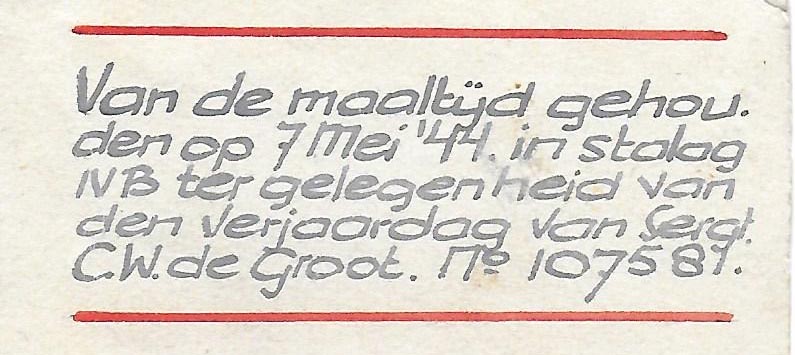 Van de maaltijd gehou.
den op 7 Mei '44. in stalag
IVB ter gelegenheid van
den verjaardag van Sergt.
C.W. de Groot. No 107581.